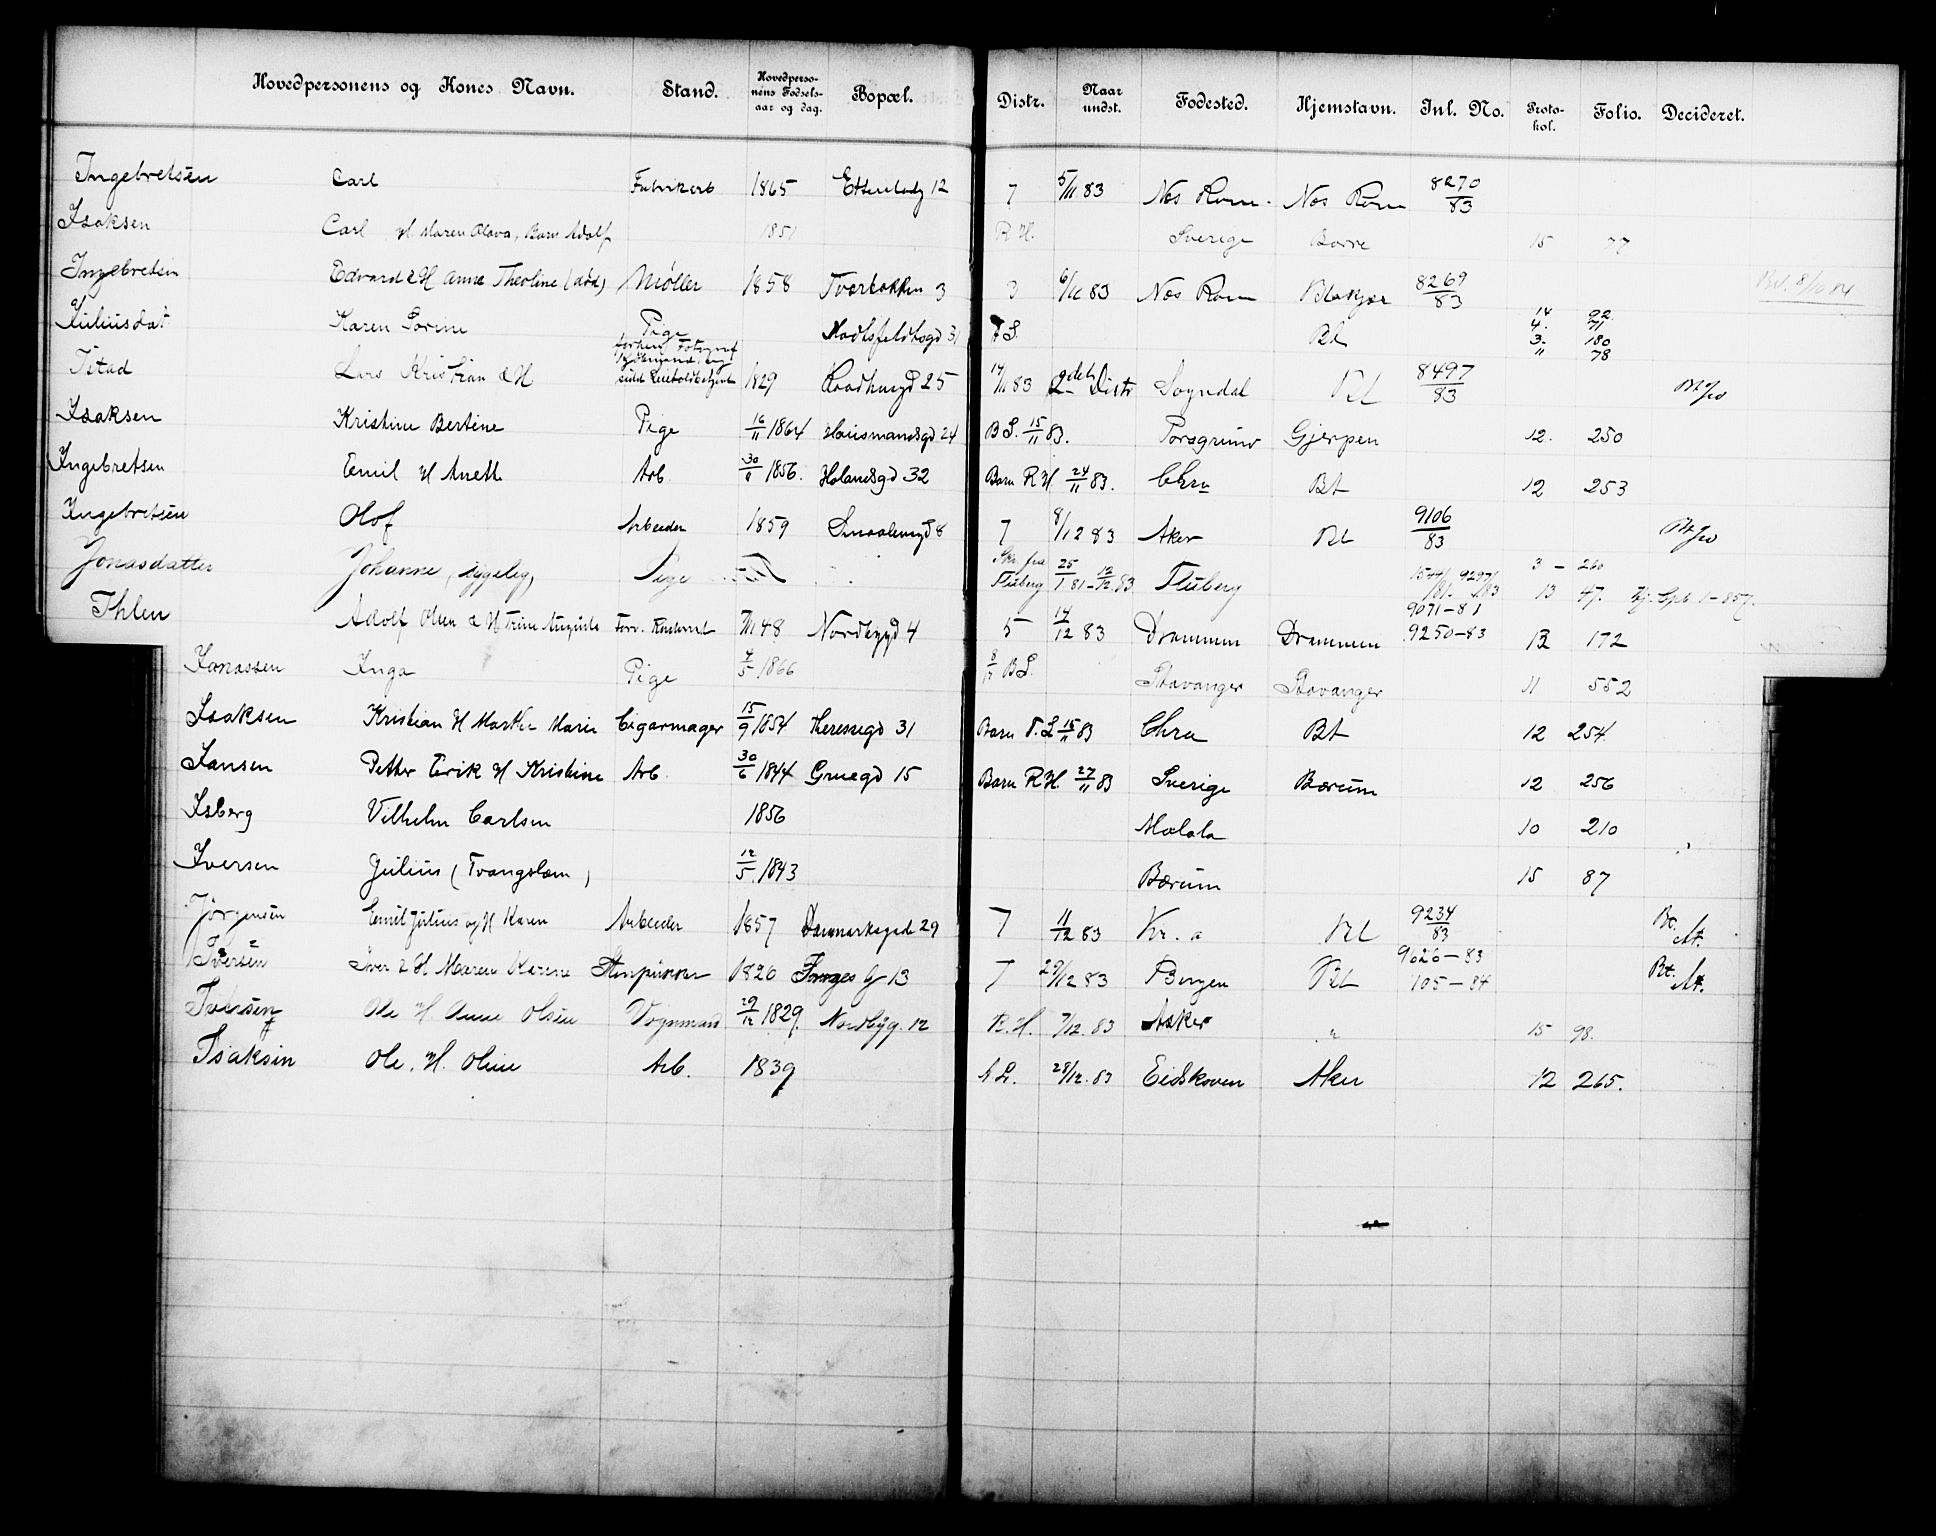 Hovedpersonens og Kones Navn. Stand. Hovedperso-nens Fødsels-aar og dag. Bopæl. Distr. Naar undst. Fødested. Hjemstavn. Inl. No. Proto-kol. Folio. Decideret.
Ingebretsen Carl Fabrikarb 1865 12 7 5/11 83 Næs Rom. Næs Rom 8270/83
Isaksen Carl H Maren Olava, Barn Adolf 1851 R H. Sverige Borre 15 77
Ingebretsen Edvard & H Anne Theoline (død) Møller 1858 Tverbakken 3 3 6/11 83 Næs Rom Blakjær 8269/83
Juliusdat Karen Sorine Pige 31 S. Bt 14 92 4. 71 3. 180 " 78
Istad Lars Kristian & H forhen Fotograf 1829 Raadhusgd 25 14/11 83 2det Distr Sogndal Bt 8497/83
Isaksen Kristine Bertine Pige 16/11 1864 Huusmandsgd 24 B S. 15/11 83. Porsgrund Gjerpen 12. 250
Ingebretsen Emil H Anette Arb. 30/ 1856. Holandsgd 32 Barn R H. 24/11 83. Chra Bt 12 253
Ingebretsen Olof Arbeider 1859 Smaalensgd 8 7 8/12 83 Aker Bt 9106/83
Jonasdatter Johanne, Pige Fluberg 25/1 81 - 12/12. 83 Fluberg 3 - 260 13 47.
Ihlen Adolf Olsen & H Trine Auguste Forv. 48 Nordbygd 4 5 14/12 83 Drammen Drammen 9071-81 9250-83 12 172
Jonassen Inga Pige 4/5 1866 8/12 B S. Stavanger Stavanger 11 552
Isaksen Kristian H Marthe Marie Cigarmager 15/9 1854 Theresesgd 31 Barn 15/11 83 Chra Bt 12 254
Jansen Petter Erik H Kristine Arb. 30/6 1844 Gruegd 15 Barn R H. 27/11 83 Sverige Bærum 12 256
Isberg Vilhelm Carlsen 1856 Modala 10 210
Iversen Julius (Tvangslem) 12/5. 1843 Bærum 15 87
Jørgensen Emil Julius og H Karen Arbeider 1857 Danmarksgad 29 7 11/12 83 Kr. a Bt 9234/83 Bt. At.
Iversen Iver & H Maren Karine Stenpukker 1820 13 7 29/12 83 Bergen Bt 9626-83 105-84 Bt. At.
Iversen Ole H Anne Olsen Vognmand 29/12 1829. Nordbyg. 12 R. H. 7/12. 83 Asker " 15 98.
Isaksen Ole. H. Oline Arb. 1839 S. 28/12. 83 Eidskoven Aker 12 265.